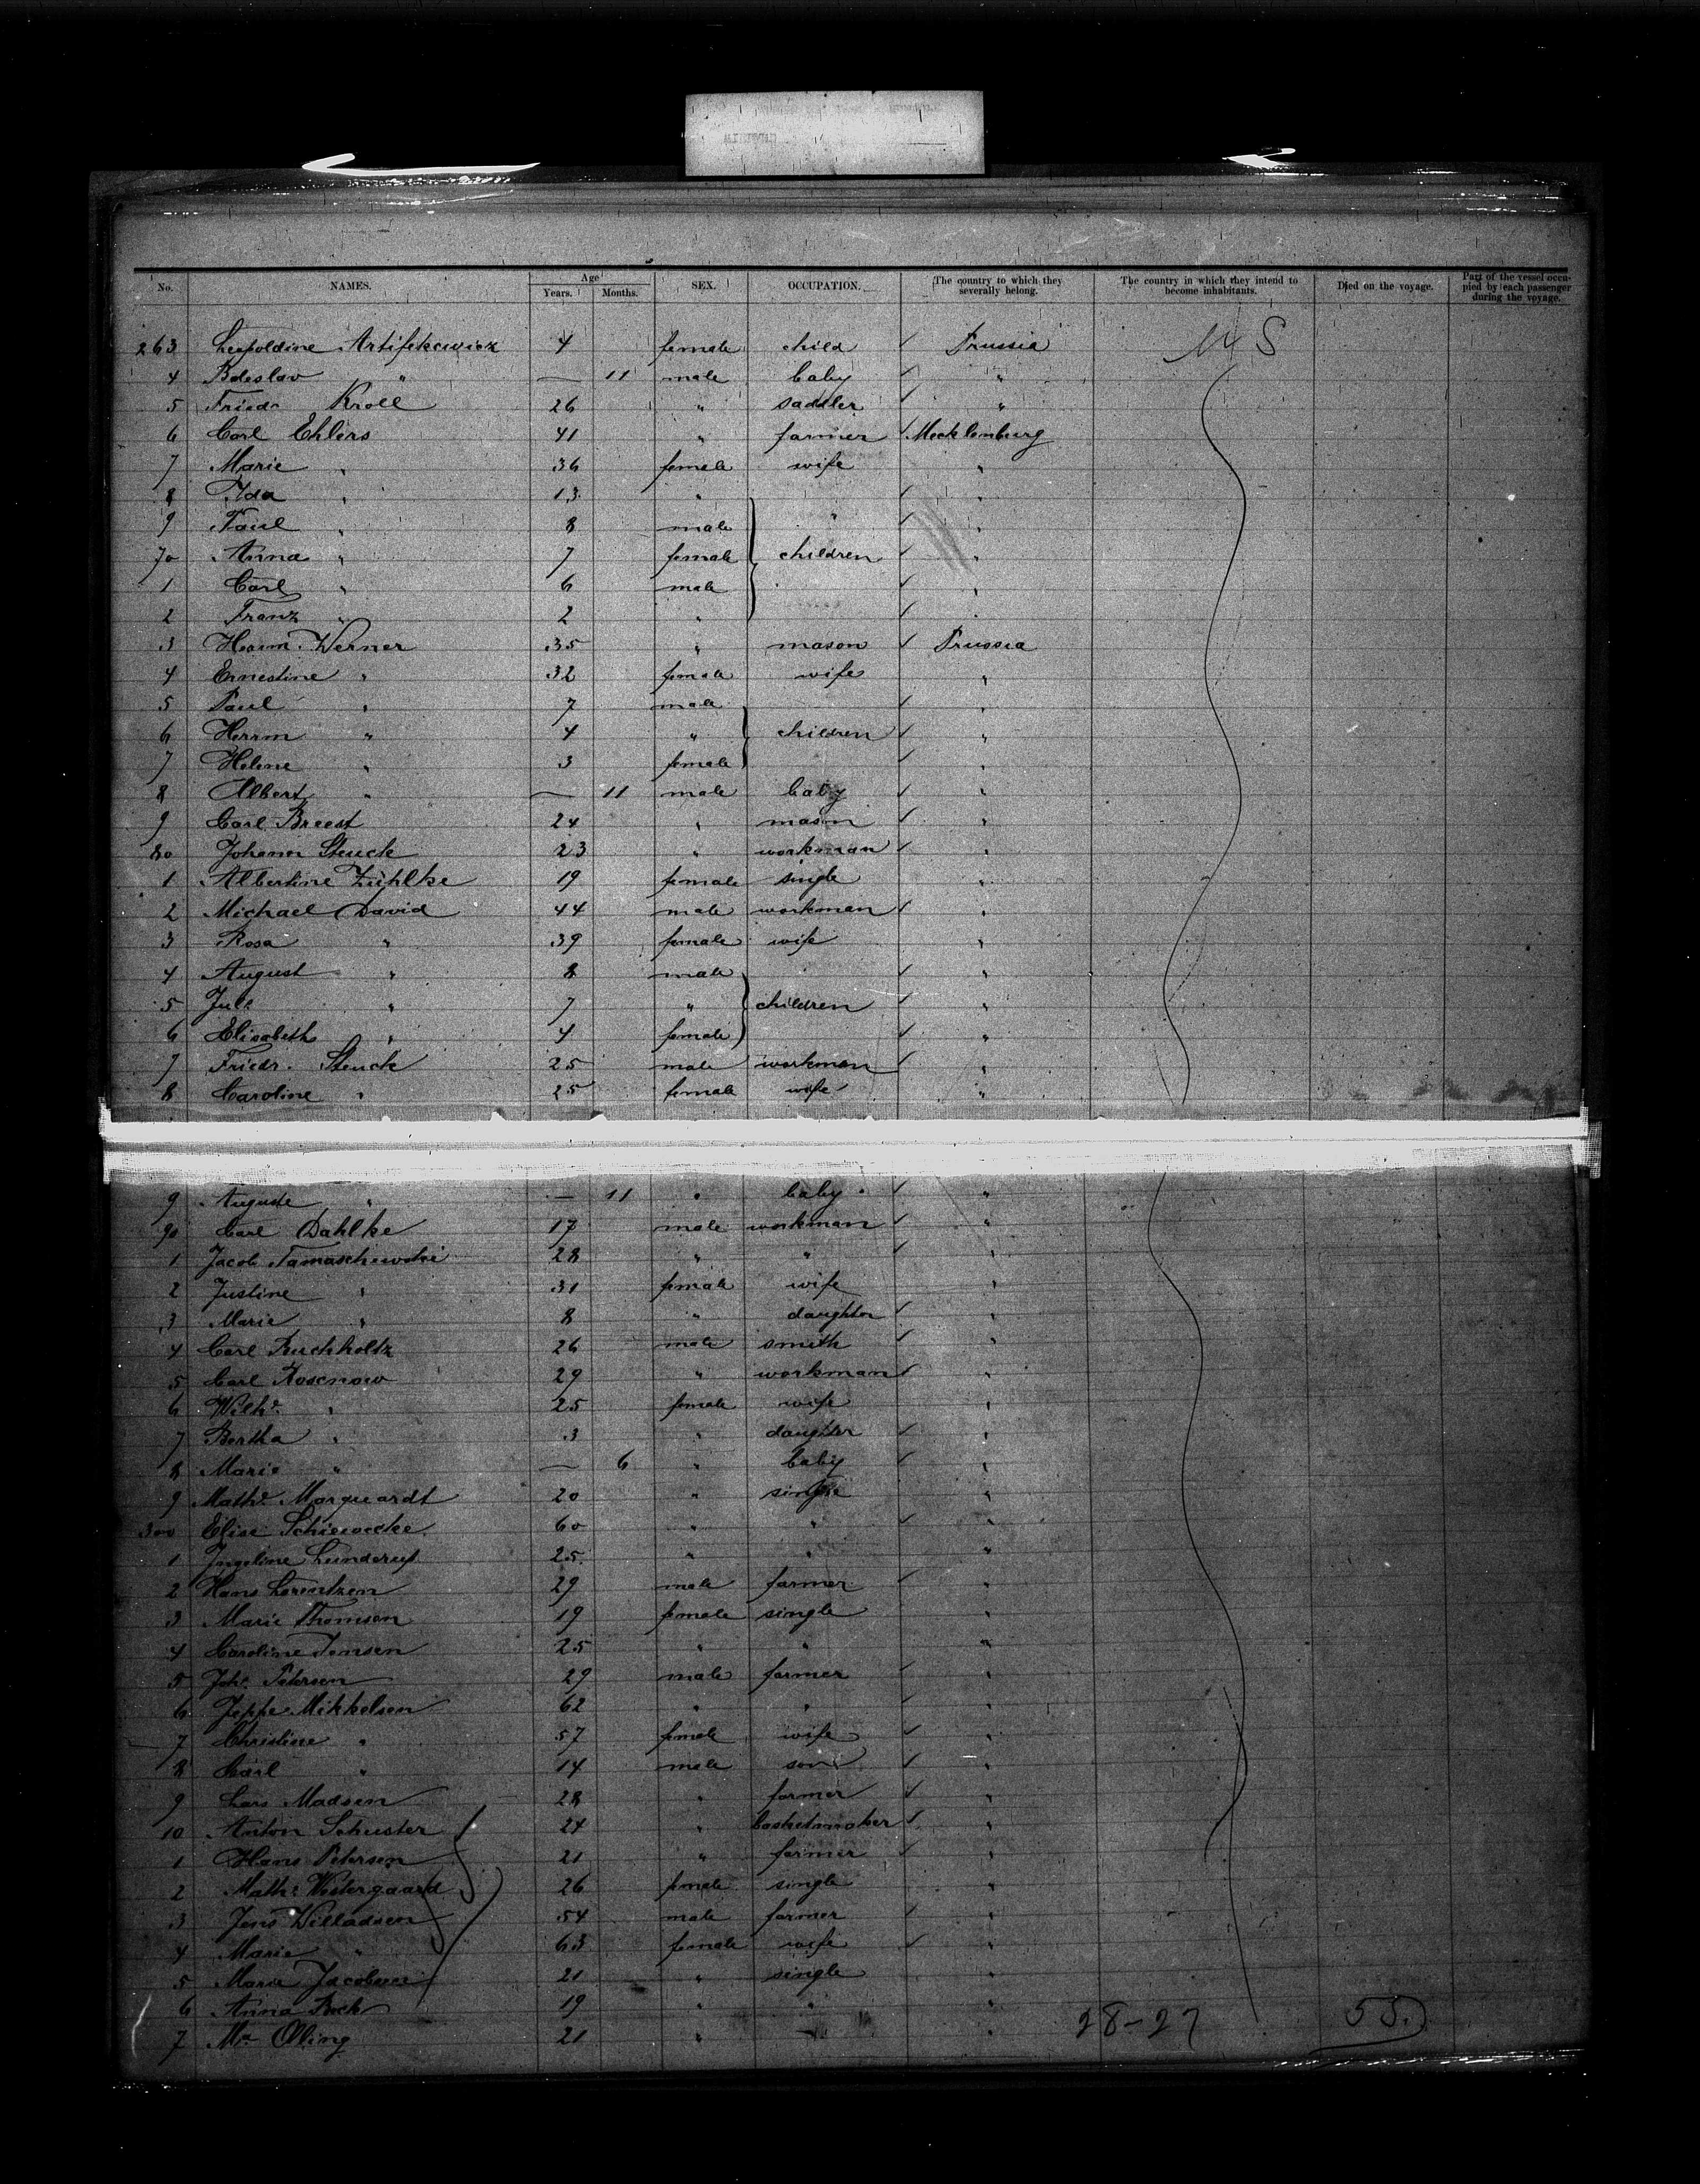 No. NAMES. Age Years. Months. SEX. OCCUPATION. The country to which they severally belong. The country in which they intend to become inhabitants. Died on the voyage. Part of the vessel occupied by each passenger during the voyage.
263 Leopoldine 4 female child ✓ Prussia U S
4 Boleslav " — 11 male baby ✓ "
5 Friedr Kroll 26 " saddler ✓ "
6 Carl Ehlers 41 " farmer ✓ Mecklenburg
7 Marie " 36 female wife "
8 Ida " 13 " ✓ "
9 Paul " 8 male " ✓ "
70 Anna " 7 female children ✓ "
1 Carl " 6 male ✓ "
2 Franz " 2 " ✓ "
3 Herm. Werner 35 " mason ✓ Prussia
4 Ernestine " 32 female wife "
5 Paul " 7 male ✓ "
6 Herrm " 4 " children ✓ "
7 Helene " 3 female ✓ "
8 Albert " — 11 male baby ✓ "
9 Carl Breest 24 " mason ✓ "
80 Johann Steuck 23 " workman ✓ "
1 Albertine Zühlke 19 female single "
2 Michael David 44 male workman ✓ "
3 Rosa " 39 female wife "
4 August " 8 male ✓ "
5 Jul. " 7 " children ✓ "
6 Elisabeth " 4 female ✓ "
7 Friedr. Steuck 25 male workman ✓ "
8 Caroline " 25 female wife "
9 Auguste " — 11 " baby ✓ "
90 Carl Dahlke 17 male workman ✓ "
1 Jacob Tamaschewski 28 " " ✓ "
2 Justine " 31 female wife "
3 Marie " 8 " daughter ✓ "
4 Carl Buchholtz 26 male smith ✓ "
5 Carl Rosenow 29 " workman ✓ "
6 Wilhe. " 25 female wife "
7 Bertha " 3 " daughter ✓ "
8 Marie " — 6 " baby ✓ "
9 Mathe Marquardt 20 " single "
300 Elise 60 " " ✓ "
1 Ingeline Lunderup 25 " " "
2 Hans Lorentzen 29 male farmer ✓ "
3 Marie Thomsen 19 female single "
4 Caroline Jensen 25 " " "
5 Johs Petersen 29 male farmer ✓ "
6 Jeppe Mikkelsen 62 " " ✓ "
7 Christine " 57 female wife ✓ "
8 Carl " 14 male son ✓ "
9 Lars Madsen 28 " farmer ✓ "
10 Anton Schuster 24 " basketmaker ✓ "
1 Hans Petersen 21 " farmer ✓ "
2 Mathe Westergaard 26 female single "
3 Jens Willadsen 54 male farmer ✓ "
4 Marie " 63 female wife ✓ "
5 Marie 21 " single "
6 Anna 19 " " "
7 21 " "
28-27 55.